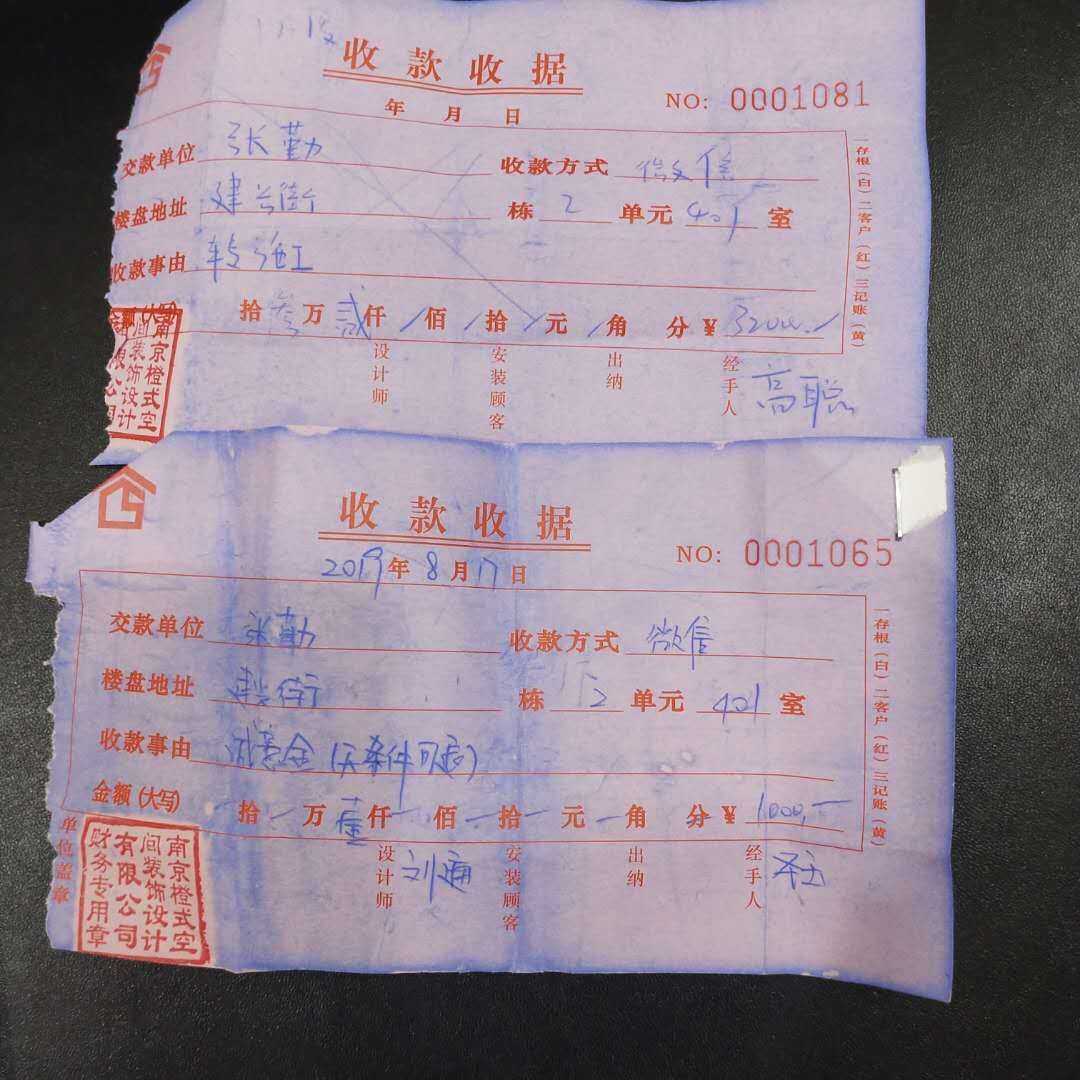 收款收据
年 月 日
NO: 0001081
交款单位 张勤 收款方式 微信
楼盘地址 建兰街 栋 2 单元 401 室
收款事由
拾 叁 万 贰 仟 / 佰 / 拾 / 元 / 角 分 ¥ 32000.
设计师 安装顾客 出纳 经手人 高聪
一存根(白)二客户(红)三记账(黄)
南京橙式空
间装饰设计
收款收据
2019年8月17日
NO: 0001065
交款单位 张勤 收款方式 微信
楼盘地址 街 栋 2 单元 401 室
收款事由 诚意金(无条件可退)
金额(大写) 拾 万 壹 仟 佰 拾 元 角 分 ¥ 1000.
单位盖章 设计师 刘通 安装顾客 出纳 经手人
一存根(白)二客户(红)三记账(黄)
南京橙式空
间装饰设计
有限公司
财务专用章